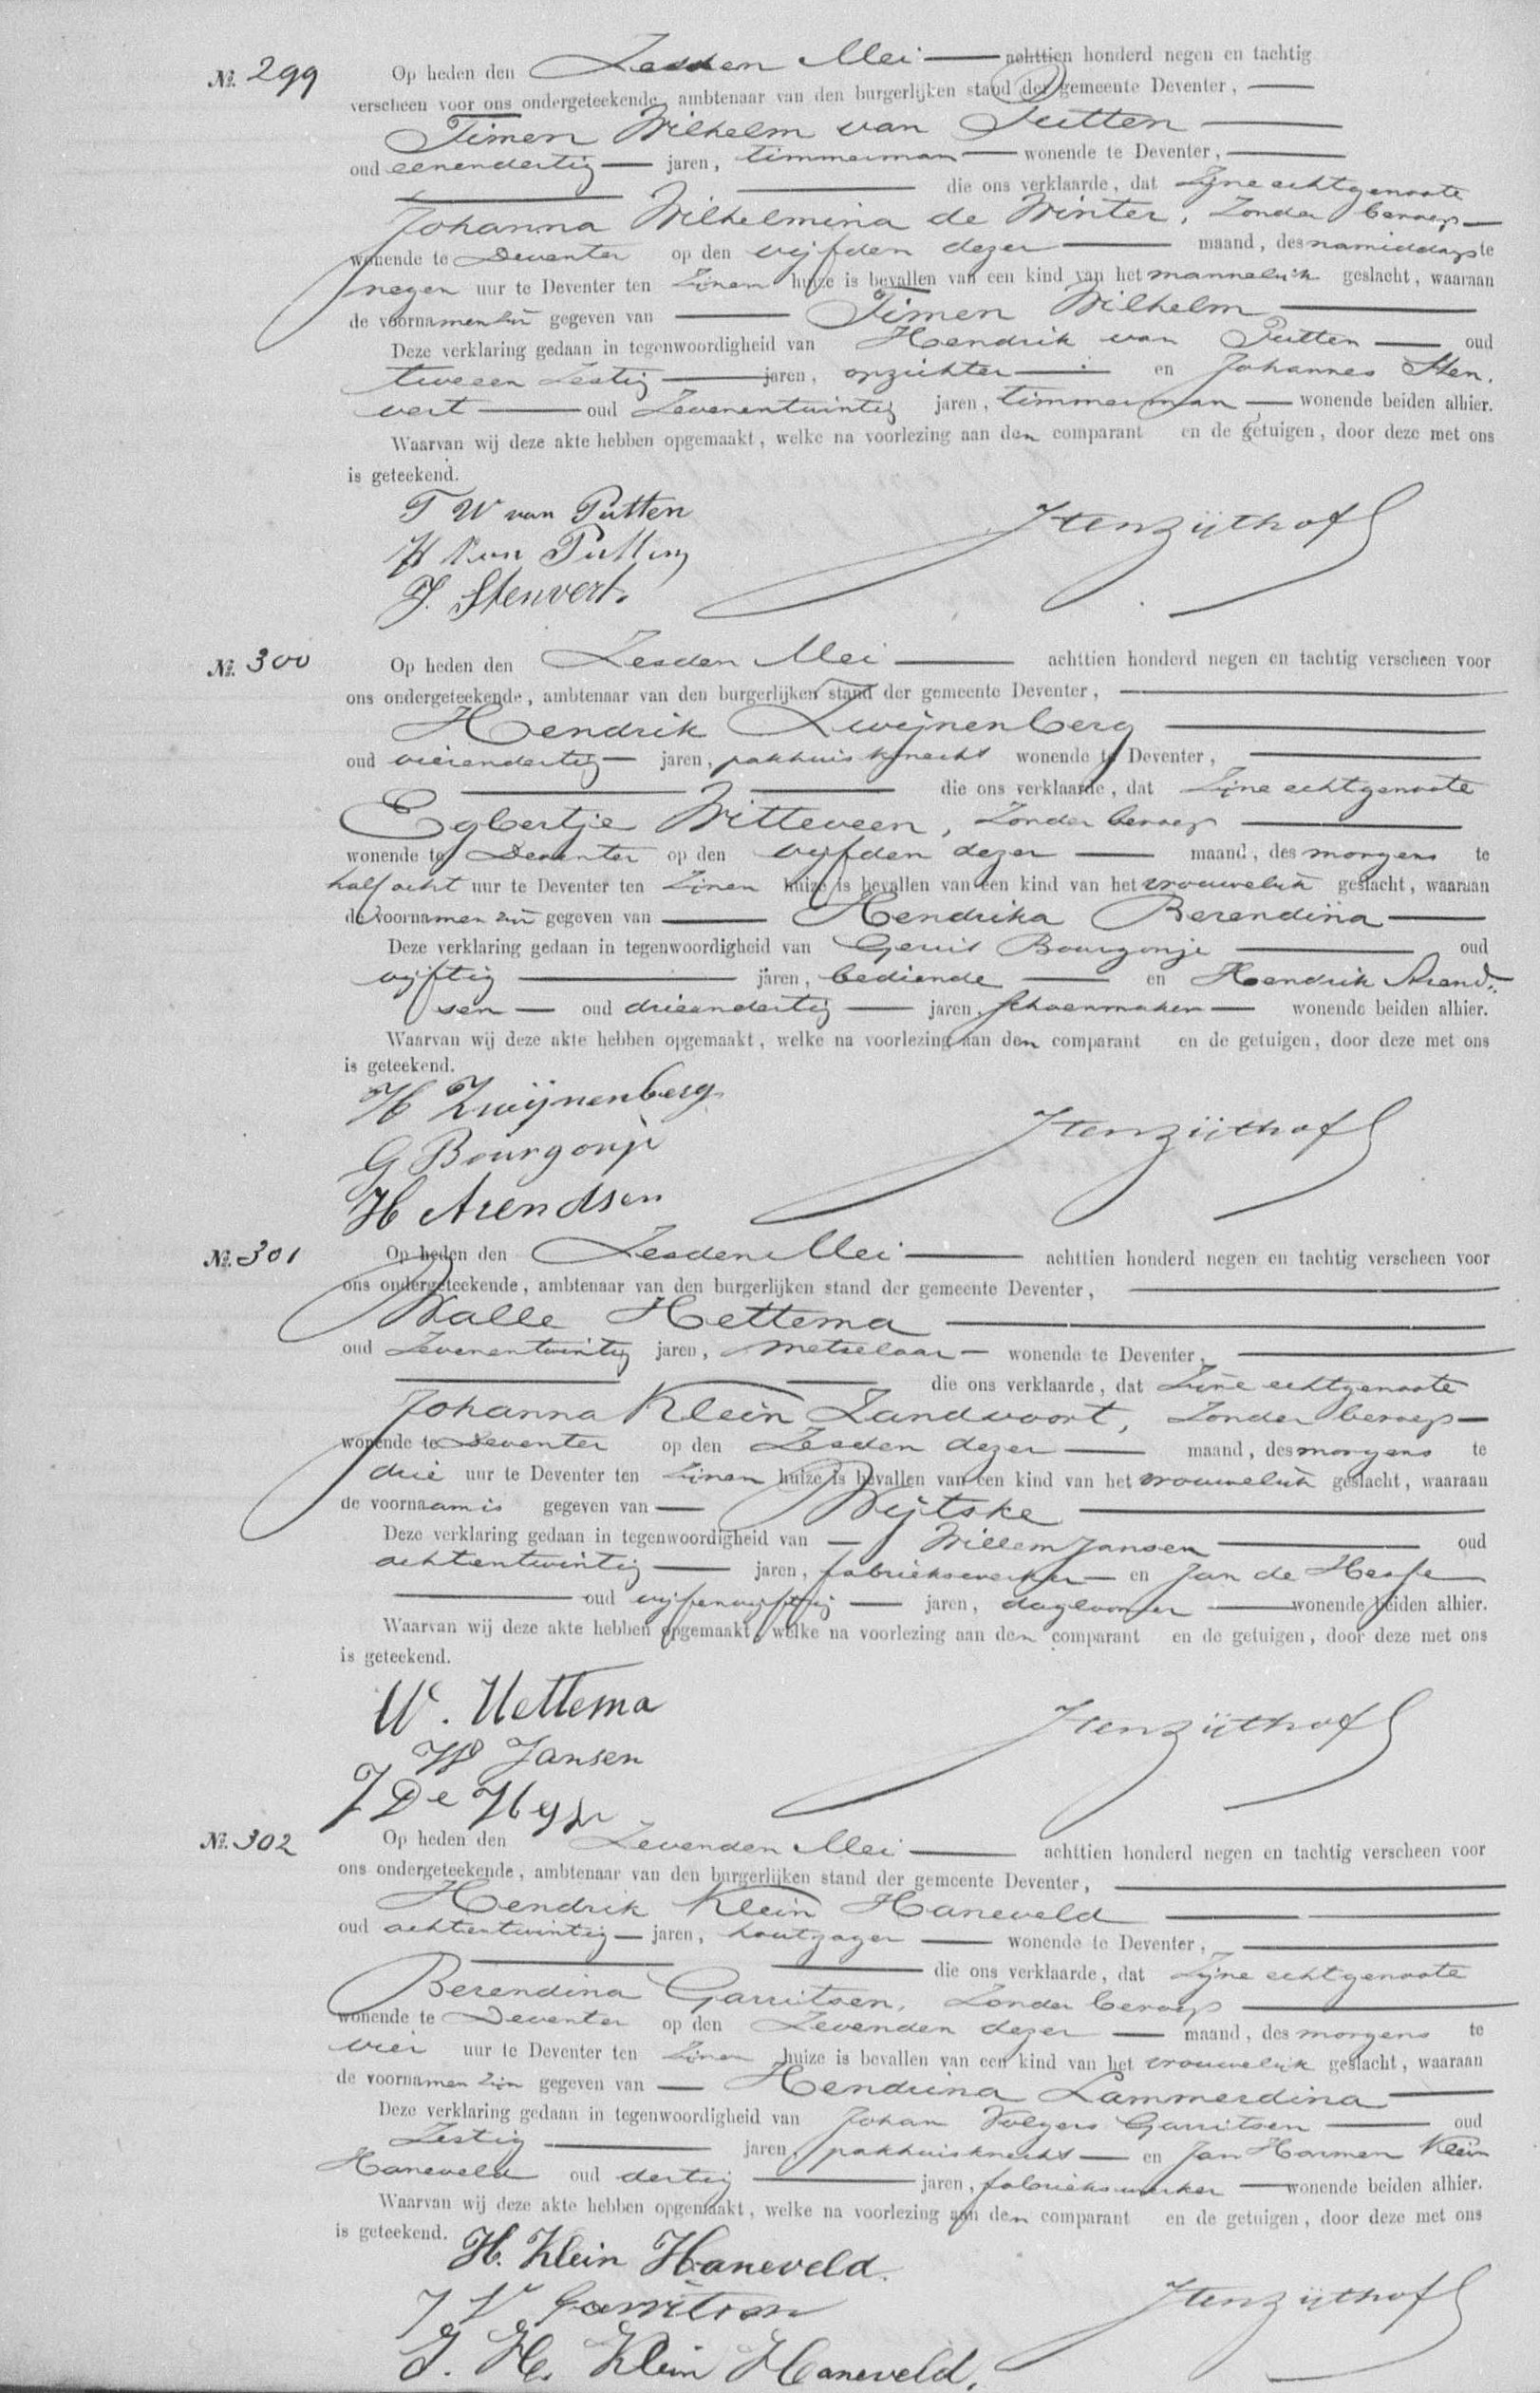 №. 299 Op heden den Zesden Mei — achttien honderd negen en tachtig
verscheen voor ons ondergeteekende, ambtenaar van den burgerlijken stand der gemeente Deventer, —
Timen Wilhelm van Putten —
oud eenendertig — jaren, timmerman — wonende te Deventer, —
— die ons verklaarde, dat Zijne echtgenoote
Johanna Wilhelmina de Winter, Zonder beroep —
wonende te Deventer op den vijfden dezer — maand, des namiddags te
negen uur te Deventer ten Zijnen huize is bevallen van een kind van het mannelijk geslacht, waaraan
de voornamen zijn gegeven van — Timen Wilhelm —
Deze verklaring gedaan in tegenwoordigheid van Hendrik van Putten — oud
tweeen Zestig — jaren, opzichter — en Johannes Sten,
vert — oud Zevenentwintig jaren, timmerman — wonende beiden alhier.
Waarvan wij deze akte hebben opgemaakt, welke na voorlezing aan den comparant en de getuigen, door deze met ons
is geteekend.
T W van Putten
H van Putten
J. Stenvert.
№. 300 Op heden den Zesden Mei — achttien honderd negen en tachtig verscheen voor
ons ondergeteekende, ambtenaar van den burgerlijken stand der gemeente Deventer, —
Hendrik Zwijnenberg —
oud vierendertig — jaren, pakhuisknecht wonende te Deventer, —
— die ons verklaarde, dat Zijne echtgenoote
Egbertje Witteveen, Zonder beroep —
wonende te Deventer op den vijfden dezer — maand, des morgens te
half acht uur te Deventer ten Zijnen huize is bevallen van een kind van het vrouwelijk geslacht, waaraan
de voornamen zijn gegeven van — Hendrika Berendina —
Deze verklaring gedaan in tegenwoordigheid van Gerrit Bourgonje — oud
vijftig — jaren, bediende — en Hendrik Arend,
sen — oud drieendertig — jaren, schoenmaker — wonende beiden alhier.
Waarvan wij deze akte hebben opgemaakt, welke na voorlezing aan den comparant en de getuigen, door deze met ons
is geteekend.
H Zwijnenberg
G Bourgonje
H Arendsen
№. 301 Op heden den Zesden Mei — achttien honderd negen en tachtig verscheen voor
ons ondergeteekende, ambtenaar van den burgerlijken stand der gemeente Deventer, —
Walle Hettema —
oud Zevenentwintig jaren, metselaar — wonende te Deventer, —
— die ons verklaarde, dat Zijne echtgenoote
Johanna Klein Zandvoort, Zonder beroep —
wonende te Deventer op den Zesden dezer — maand, des morgens te
drie uur te Deventer ten Zijnen huize is bevallen van een kind van het vrouwelijk geslacht, waaraan
de voornaam is gegeven van — Wijtske —
Deze verklaring gedaan in tegenwoordigheid van — Willem Jansen — oud
achtentwintig — jaren, fabriekswerker — en Jan de Hesse
— oud vijfenvijftig — jaren, daglooner — wonende beiden alhier.
Waarvan wij deze akte hebben opgemaakt, welke na voorlezing aan den comparant en de getuigen, door deze met ons
is geteekend.
W. Hettema
W Jansen
J De
№. 302 Op heden den Zevenden Mei — achttien honderd negen en tachtig verscheen voor
ons ondergeteekende, ambtenaar van den burgerlijken stand der gemeente Deventer, —
Hendrik Klein Haneveld —
oud achtentwintig — jaren, houtzager — wonende te Deventer, —
— die ons verklaarde, dat Zijne echtgenoote
Berendina Garritsen, Zonder beroep —
wonende te Deventer op den Zevenden dezer — maand, des morgens te
vier uur te Deventer ten Zijnen huize is bevallen van een kind van het vrouwelijk geslacht, waaraan
de voornamen zijn gegeven van — Hendrina Lammerdina —
Deze verklaring gedaan in tegenwoordigheid van Johan Volgers Garritsen — oud
Zestig — jaren, pakhuisknecht — en Jan Harmen Klein
Haneveld oud dertig — jaren, fabriekswerker — wonende beiden alhier.
Waarvan wij deze akte hebben opgemaakt, welke na voorlezing aan den comparant en de getuigen, door deze met ons
is geteekend.
H. Klein Haneveld.
J V Garritsen
J. H. Klein Haneveld.